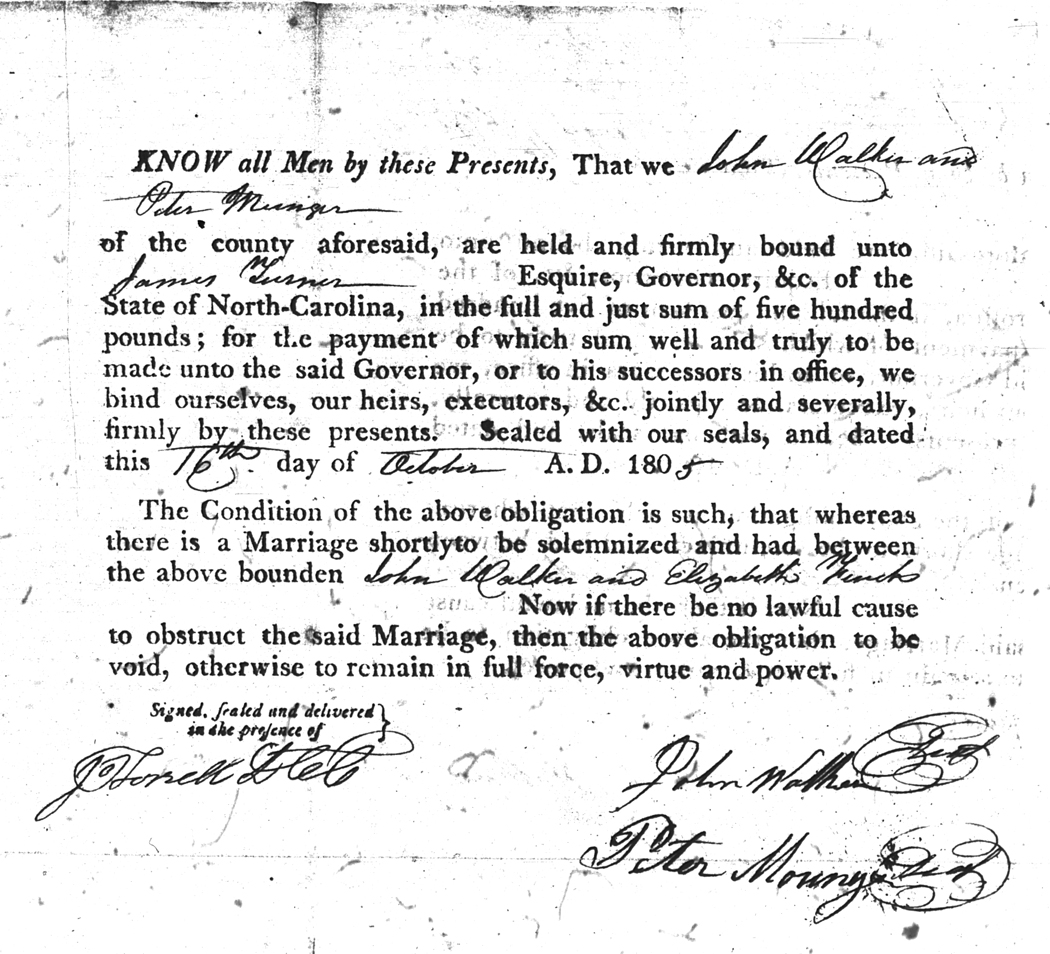 KNOW all Men by these Presents, That we John Walker and
Peter Munger
of the county aforesaid, are held and firmly bound unto
James Turner Esquire, Governor, &c. of the
State of North-Carolina, in the full and just sum of five hundred
pounds; for the payment of which sum well and truly to be
made unto the said Governor, or to his successors in office, we
bind ourselves, our heirs, executors, &c. jointly and severally,
firmly by these presents. Sealed with our seals, and dated
this 16th. day of October A. D. 1805
The Condition of the above obligation is such, that whereas
there is a Marriage shortlyto be solemnized and had between
the above bounden John Walker and Elizabeth Finch
Now if there be no lawful cause
to obstruct the said Marriage, then the above obligation to be
void, otherwise to remain in full force, virtue and power.
Signed, sealed and delivered }
in the presence of
John Walker Seal
Peter Mounger Seal